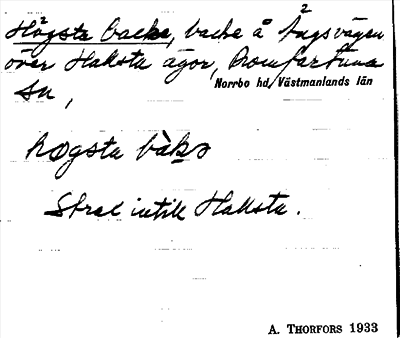 Högsta backe, backe å tågsvägen
över Hallsta ägor, Romfartuna
Norrbo hd, Västmanlands län
sn,
högsta bàkə
Strax intill Hallsta.
A. THORFORS 1933